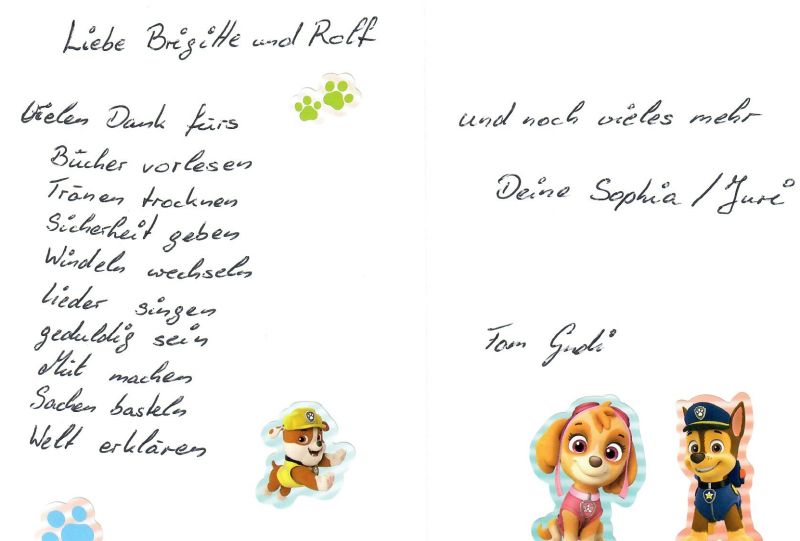 Liebe Brigitte und Rolf
Vielen Dank fürs
Bücher vorlesen
Tränen trocknen
Sicherheit geben
Windeln wechseln
Lieder singen
geduldig sein
Mut machen
Sachen basteln
Welt erklären
und noch vieles mehr
Deine Sophia / Juri
Fam